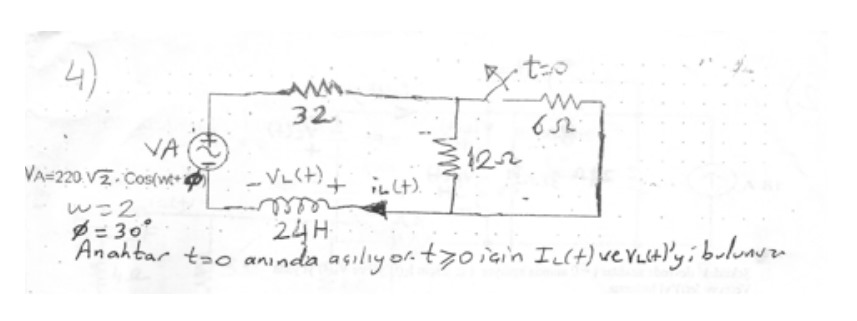 4)
t=0
32
6Ω
VA
12Ω
VA=220.√2.Cos(wt+Ø)
- VL(t) + iL(t)
w=2
24H
Ø=30°
Anahtar t=0 anında açılıyor. t≥0 için IL(t) ve VL(t)'yi bulunuz